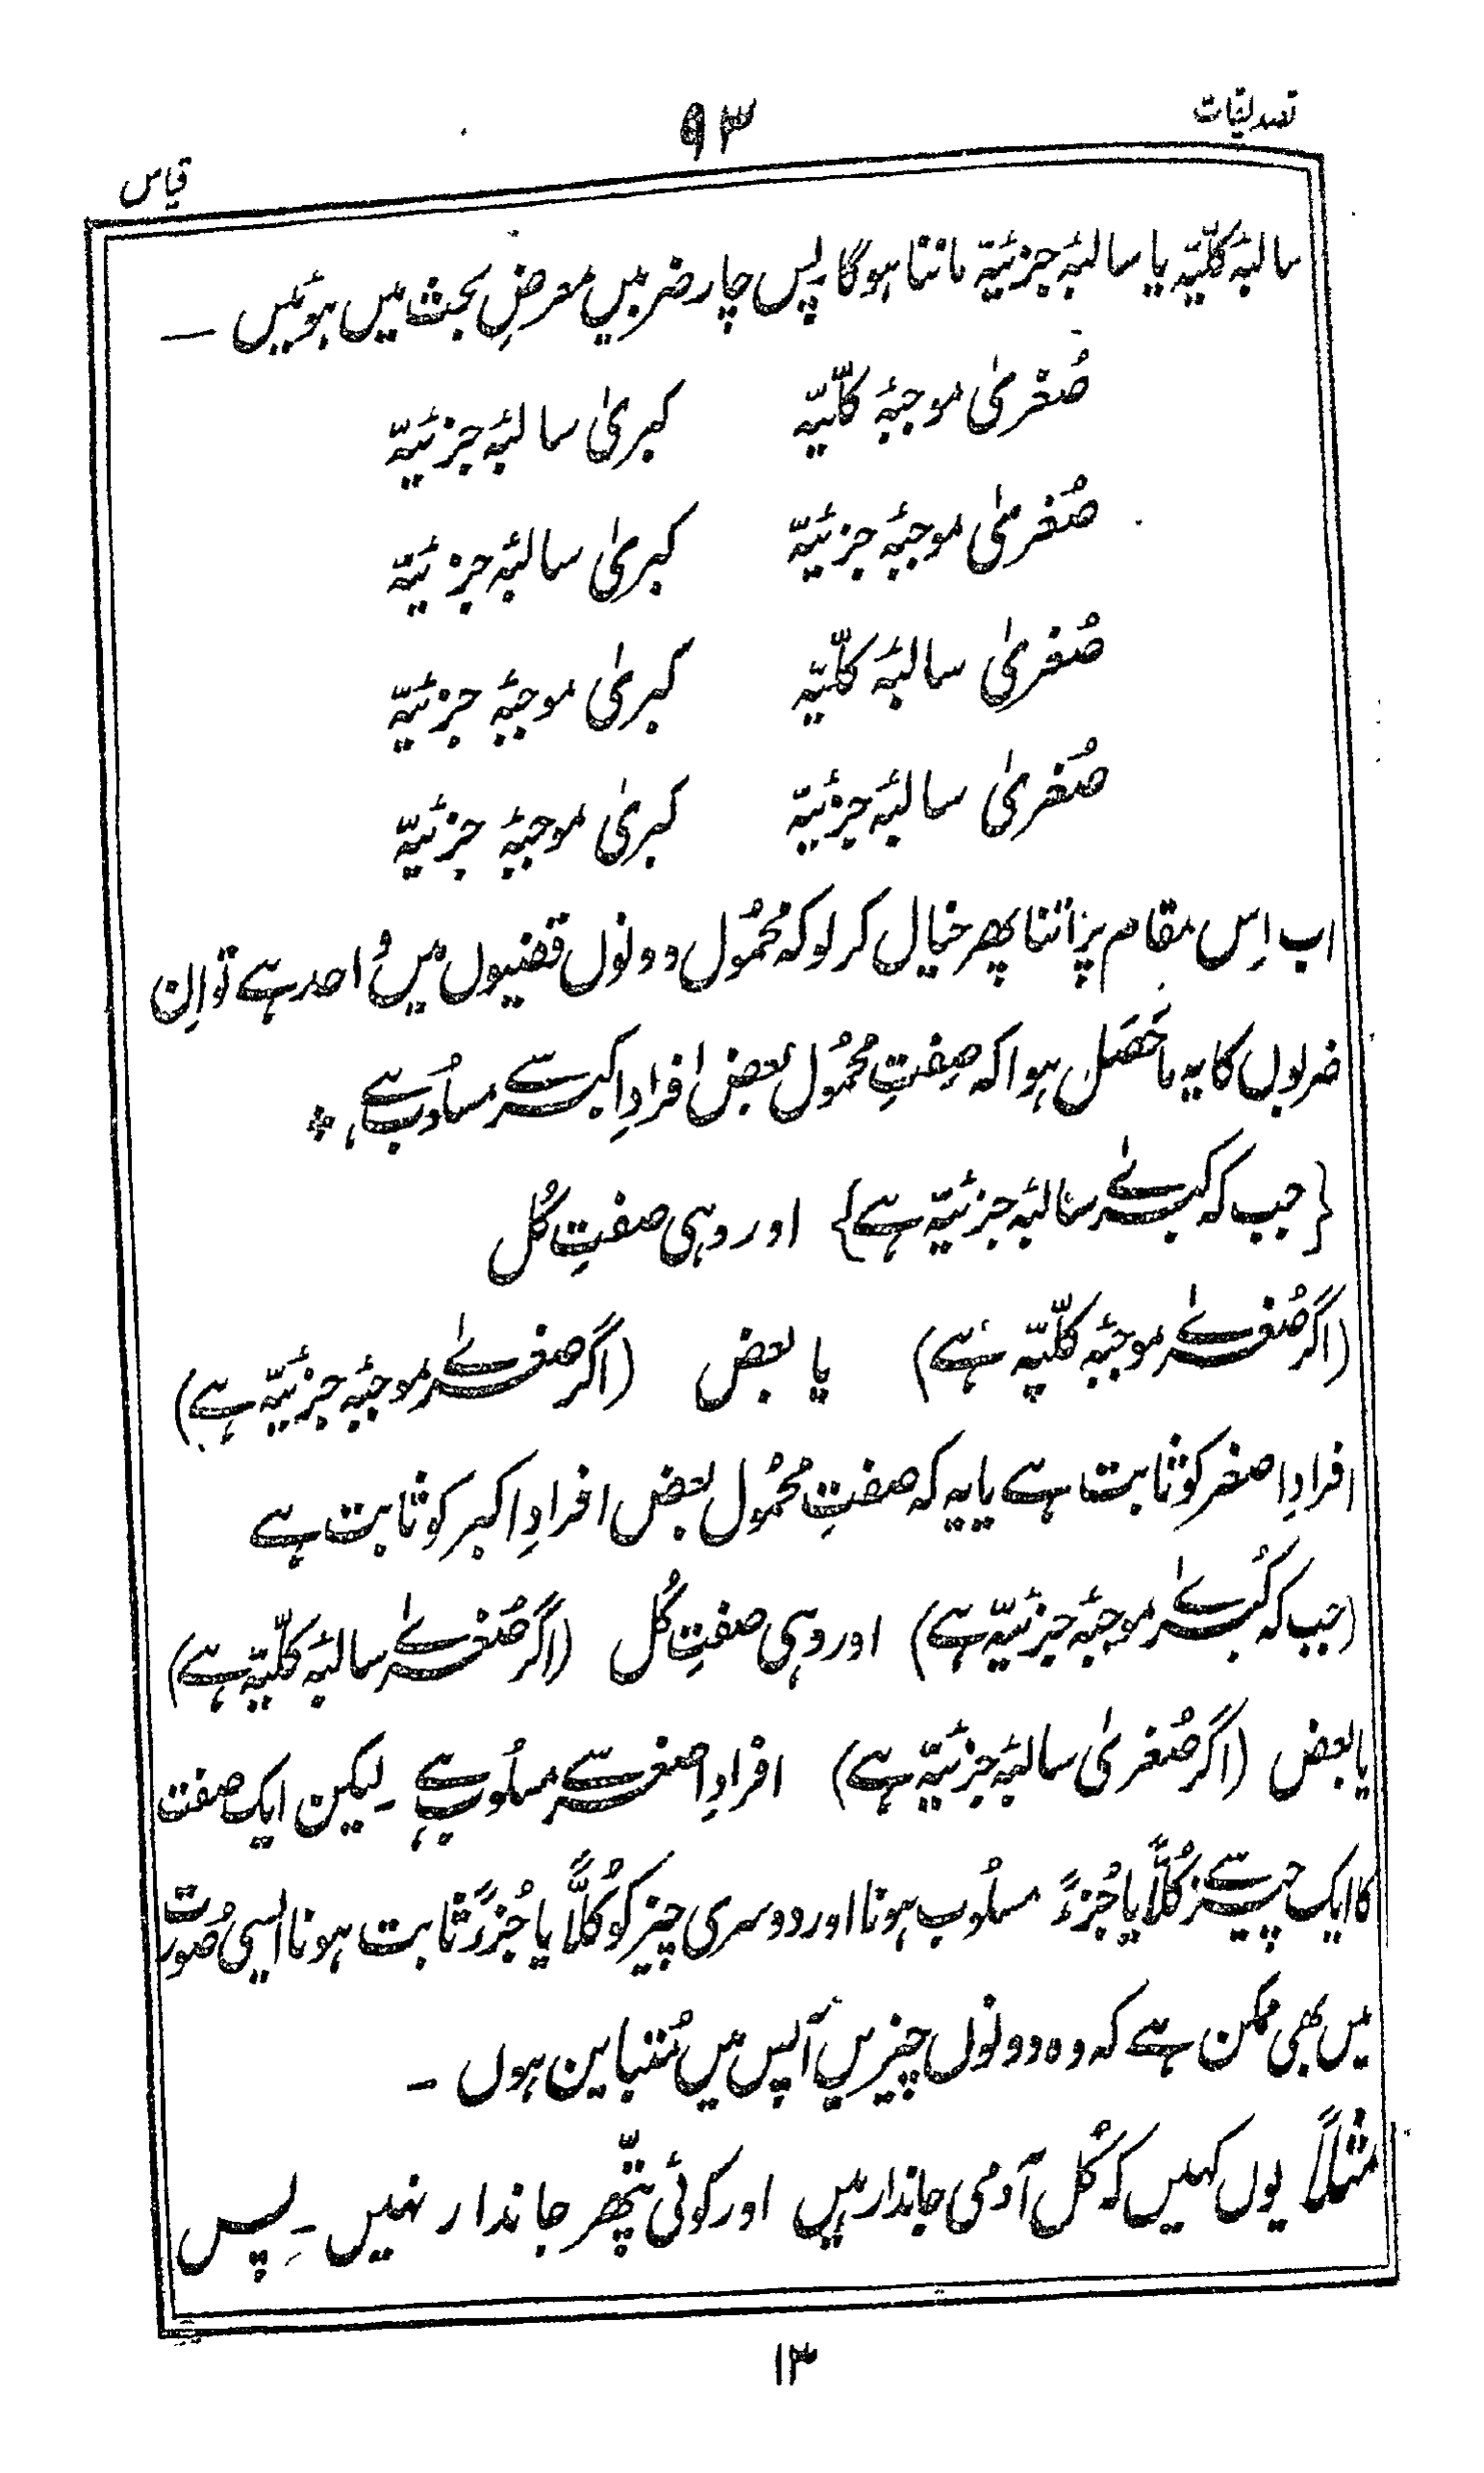 تصدیقات
۹۳
قیاس
سالبۂ کلّیّہ یا سالبۂ جزئیّہ ماننا ہوگا پس چار ضربیں معرضِ بحث میں ہوئیں ۔
صُغریٰ موجبۂ کلّیّہ کبریٰ سالبۂ جزئیّہ
صُغریٰ موجبۂ جزئیّہ کبریٰ سالبۂ جزئیّہ
صُغریٰ سالبۂ کلّیّہ کبریٰ موجبۂ جزئیّہ
صُغریٰ سالبۂ جزئیّہ کبریٰ موجبۂ جزئیّہ
اب اِس مقام پر اتنا پھر خیال کر لو کہ محمُول دونوں قضیوں میں واحد ہے تو اِن
ضربوں کا یہ ماحَصَل ہوا کہ صِفتِ محمُول بعض افرادِ اکبر سے مسلُوب ہے *
{جب کہ کبریٰ سالبۂ جزئیّہ ہے} اور وہی صفتِ کُل
(اگر صُغریٰ موجبۂ کلّیّہ ہے) یا بعض (اگر صغریٰ موجبۂ جزئیّہ ہے)
افرادِ اصغر کو ثابت ہے یا یہ کہ صفتِ محمُول بعض افرادِ اکبر کو ثابت ہے
(جب کہ کُبریٰ موجبۂ جزئیّہ ہے) اور وہی صفتِ کُل (اگر صُغریٰ سالبۂ کلّیّہ ہے)
یا بعض (اگر صُغریٰ سالبۂ جزئیّہ ہے) افرادِ اصغر سے مسلُوب ہے ۔ لیکن ایک صفت
کا ایک چیز سے کُلّاً یا جُزءً مسلُوب ہونا اور دوسری چیز کو کُلّاً یا جُزءً ثابت ہونا ایسی صُورت
میں بھی ممکن ہے کہ وہ دونوں چیزیں آپس میں مُتباین ہوں ۔
مثلاً یوں کہیں کہ کُل آدمی جاندار ہیں اور کوئی پتّھر جاندار نہیں ۔ پس
۱۳